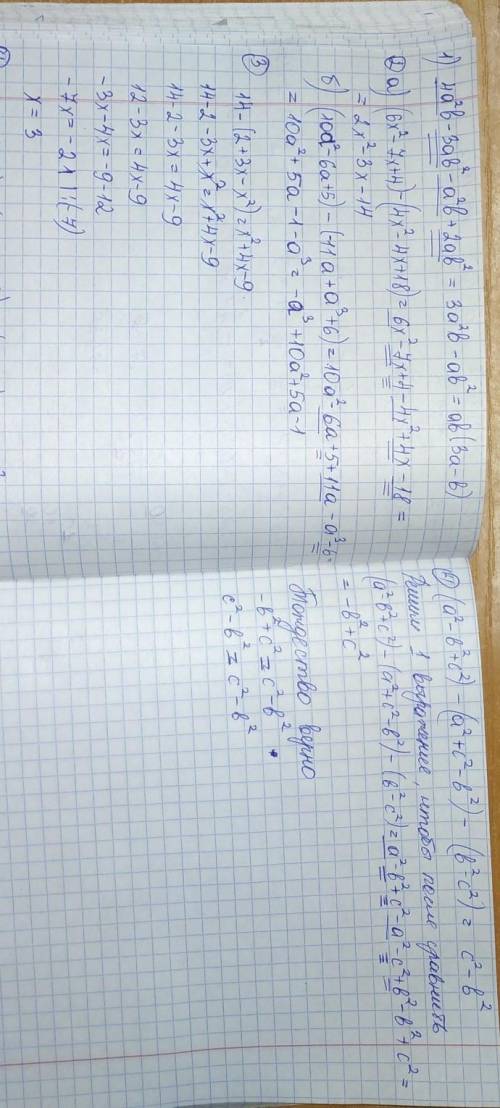 1) 4a²b-3ab²-a²b+2ab² = 3a²b-ab² = ab(3a-b)
② а) (6x²-7x+4)-(4x²-4x+18)= 6x²-7x+4-4x²+4x-18 =
= 2x²-3x-14
б) (10a²-6a+5)-(-11a+a³+6)=10a²-6a+5+11a-a³-6=
= 10a²+5a-1-a³ = -a³+10a²+5a-1
③ 14-(2+3x-x²)=x²+4x-9
14-2-3x+x²=x²+4x-9
14-2-3x=4x-9
12-3x=4x-9
-3x-4x=-9-12
-7x=-21 |:(-7)
x=3
④ (a²-b²+c²)-(a²+c²-b²)-(b²-c²)= c²-b²
Решим 1 выражение, чтобы после сравнить
(a²-b²+c²)-(a²+c²-b²)-(b²-c²)=a²-b²+c²-a²-c²+b²-b²+c²=
= -b²+c²
-b²+c²=c²-b²
c²-b²=c²-b²
Тождество верно